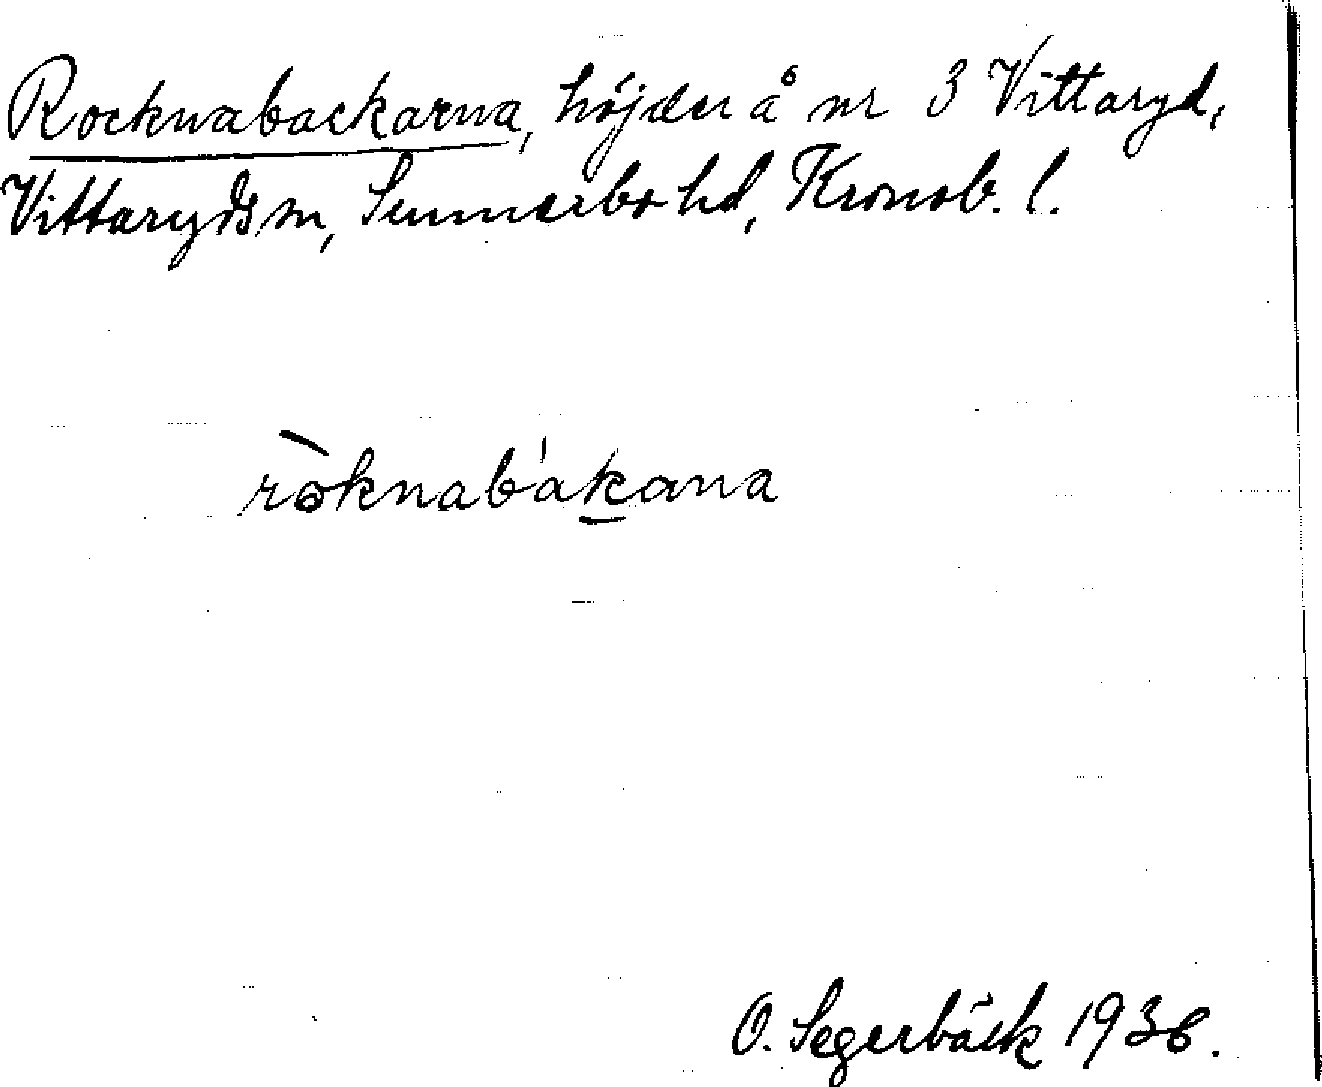 Rocknabackarna, höjder å nr 3 Vittaryd,
Vittaryds sn, Sunnerbo hd, Kronob. l.
ròknabákana
O. Segerbäck 1936.